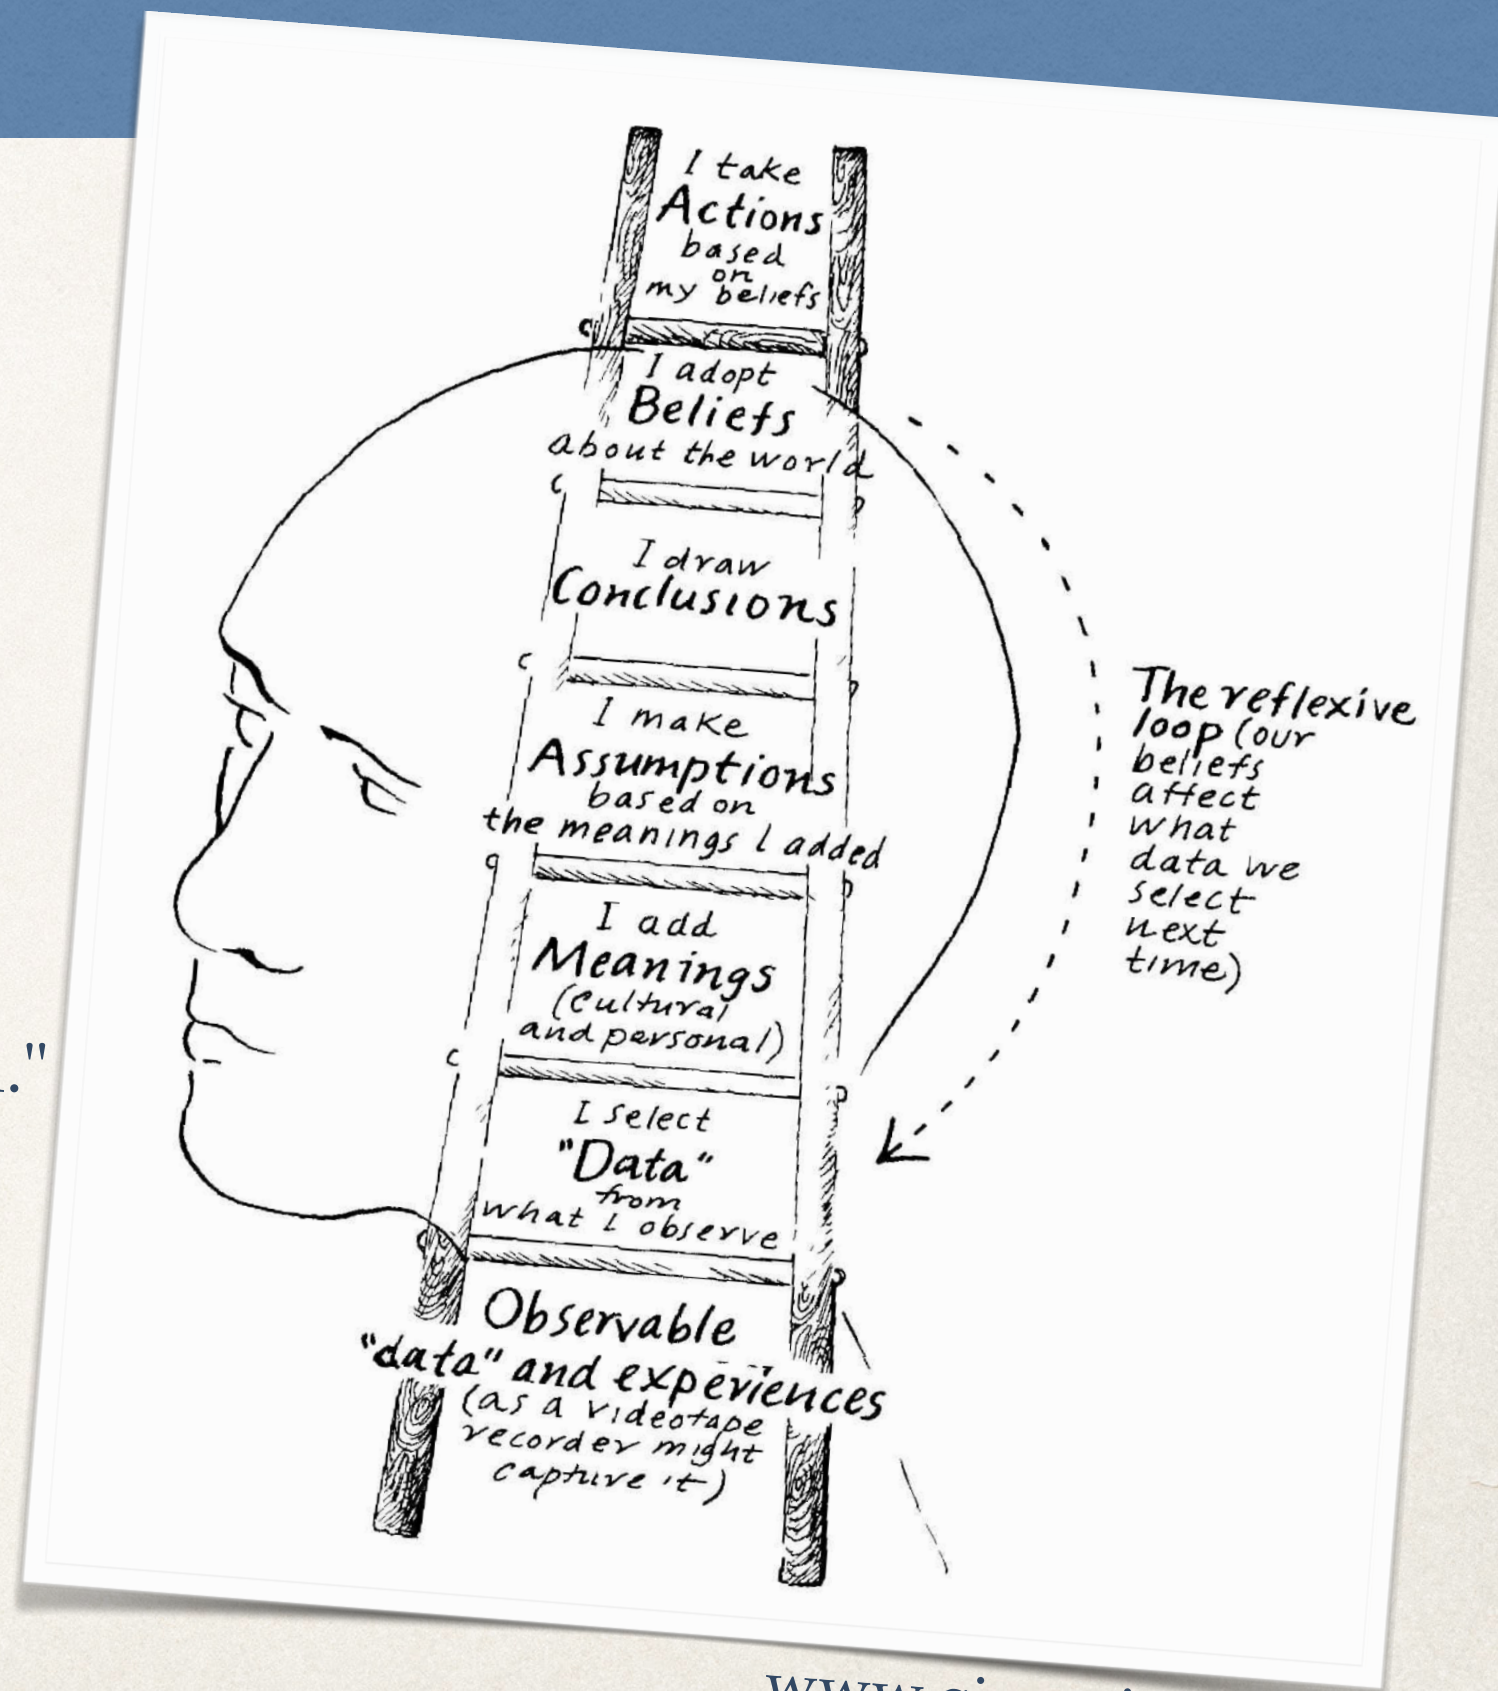 I take
Actions
based
on
my beliefs
I adopt
Beliefs
about the world
I draw
Conclusions
I make
Assumptions
based on
the meanings I added
I add
Meanings
(cultural
and personal)
I select
"Data"
from
what I observe
Observable
"data" and experiences
(as a videotape
recorder might
capture it)
The reflexive
loop (our
beliefs
affect
what
data we
select
next
time)
."